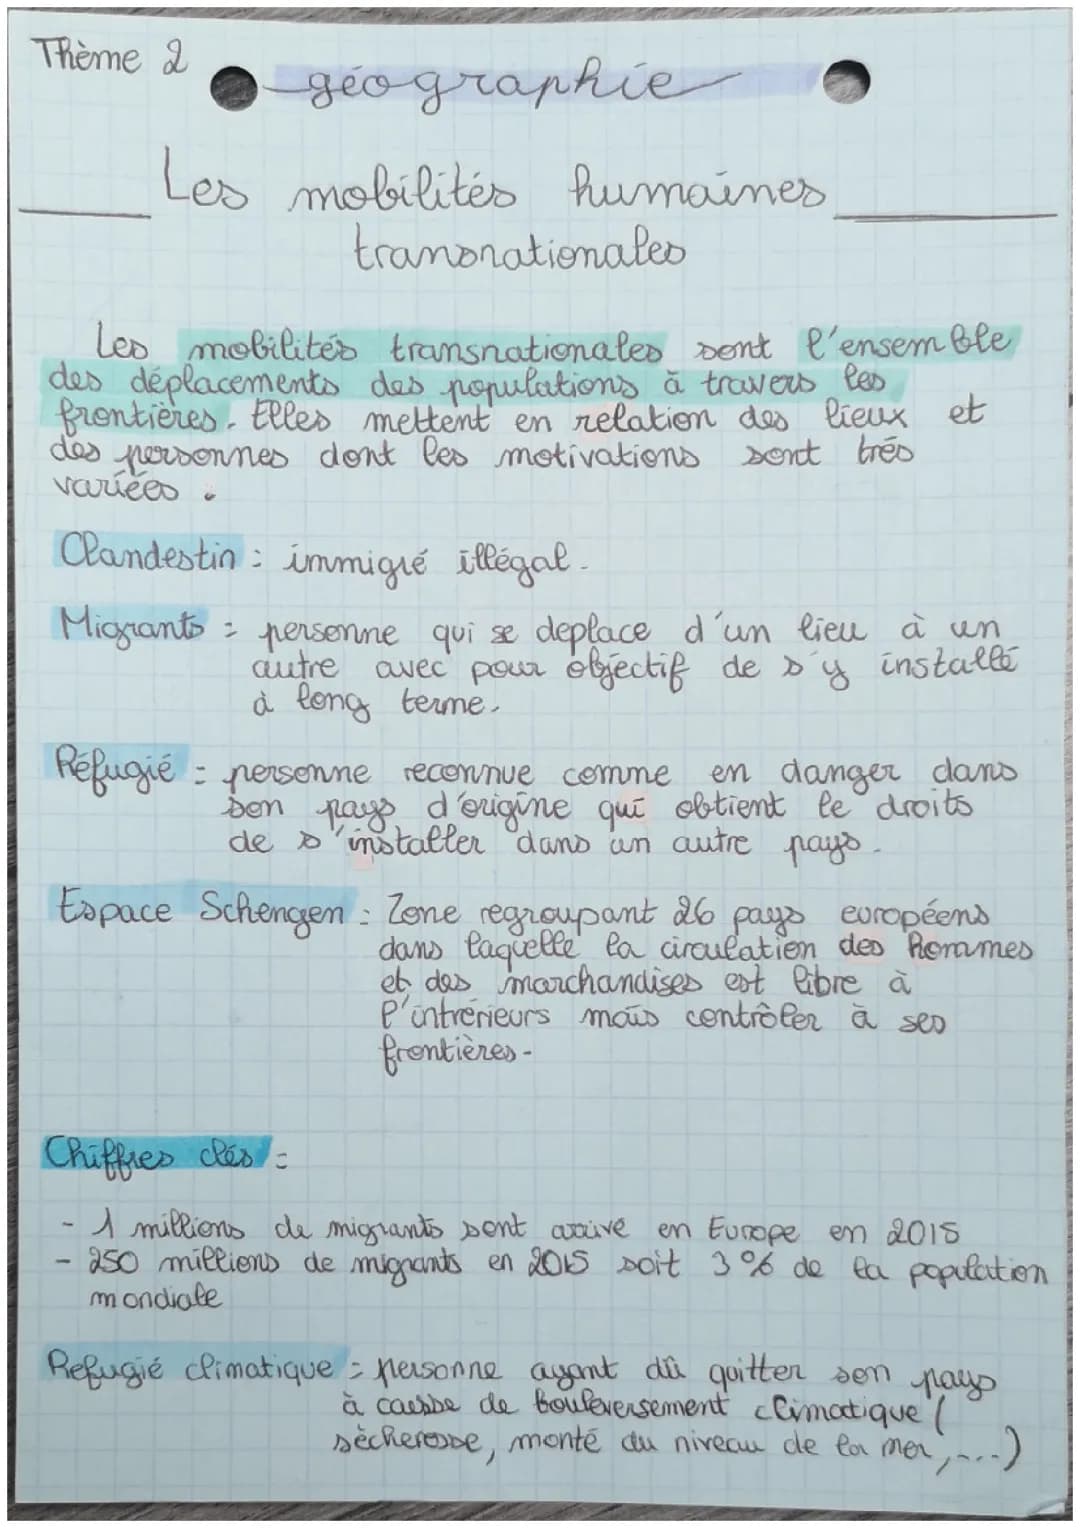 Thème 2
géographie
Les mobilités humaines
transnationales
Les mobilités transnationales sont l'ensemble
des déplacements des populations à travers les
frontières. Elles mettent en relation des lieux et
des personnes dont les motivations sont très
variées.
Clandestin : immigré illégal.
Migrants : personne qui se deplace d'un lieu à un
autre avec pour objectif de s'y installé
à long terme.
Réfugié : personne reconnue comme en danger dans
son pays d'origine qui obtient le droits
de s'installer dans un autre pays.
Espace Schengen : Zone regroupant 26 pays européens
dans laquelle la circulation des hommes
et des marchandises est libre à
l'intrérieurs mais contrôler à ses
frontières.
Chiffres clés :
- 1 millions de migrants sont arrivé en Europe en 2015
- 250 millions de migrants en 2015 soit 3% de la population
mondiale
Refugié climatique : personne ayant dû quitter son pays
à causse de bouleversement climatique (
sècheresse, monté du niveau de la mer,....)